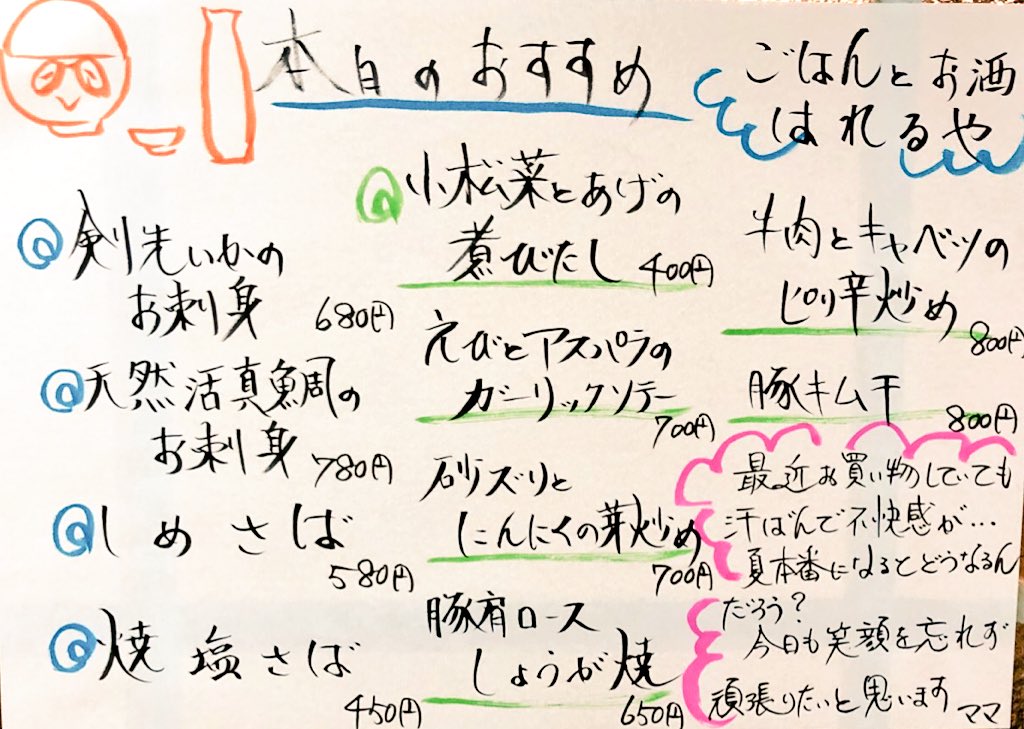 本日のおすすめ
ごはんとお酒
はれるや
剣先いかの
お刺身 680円
天然活真鯛の
お刺身 780円
しめさば
580円
焼塩さば
450円
小松菜とあげの
煮びたし 400円
えびとアスパラの
ガーリックソテー
700円
砂ズリと
にんにくの芽炒め
700円
豚肩ロース
しょうが焼
650円
牛肉とキャベツの
ピリ辛炒め
800円
豚キムチ
800円
最近お買い物していても
汗ばんで不快感が…
夏本番になるとどうなるん
だろう?
今日も笑顔を忘れず
頑張りたいと思います ママ